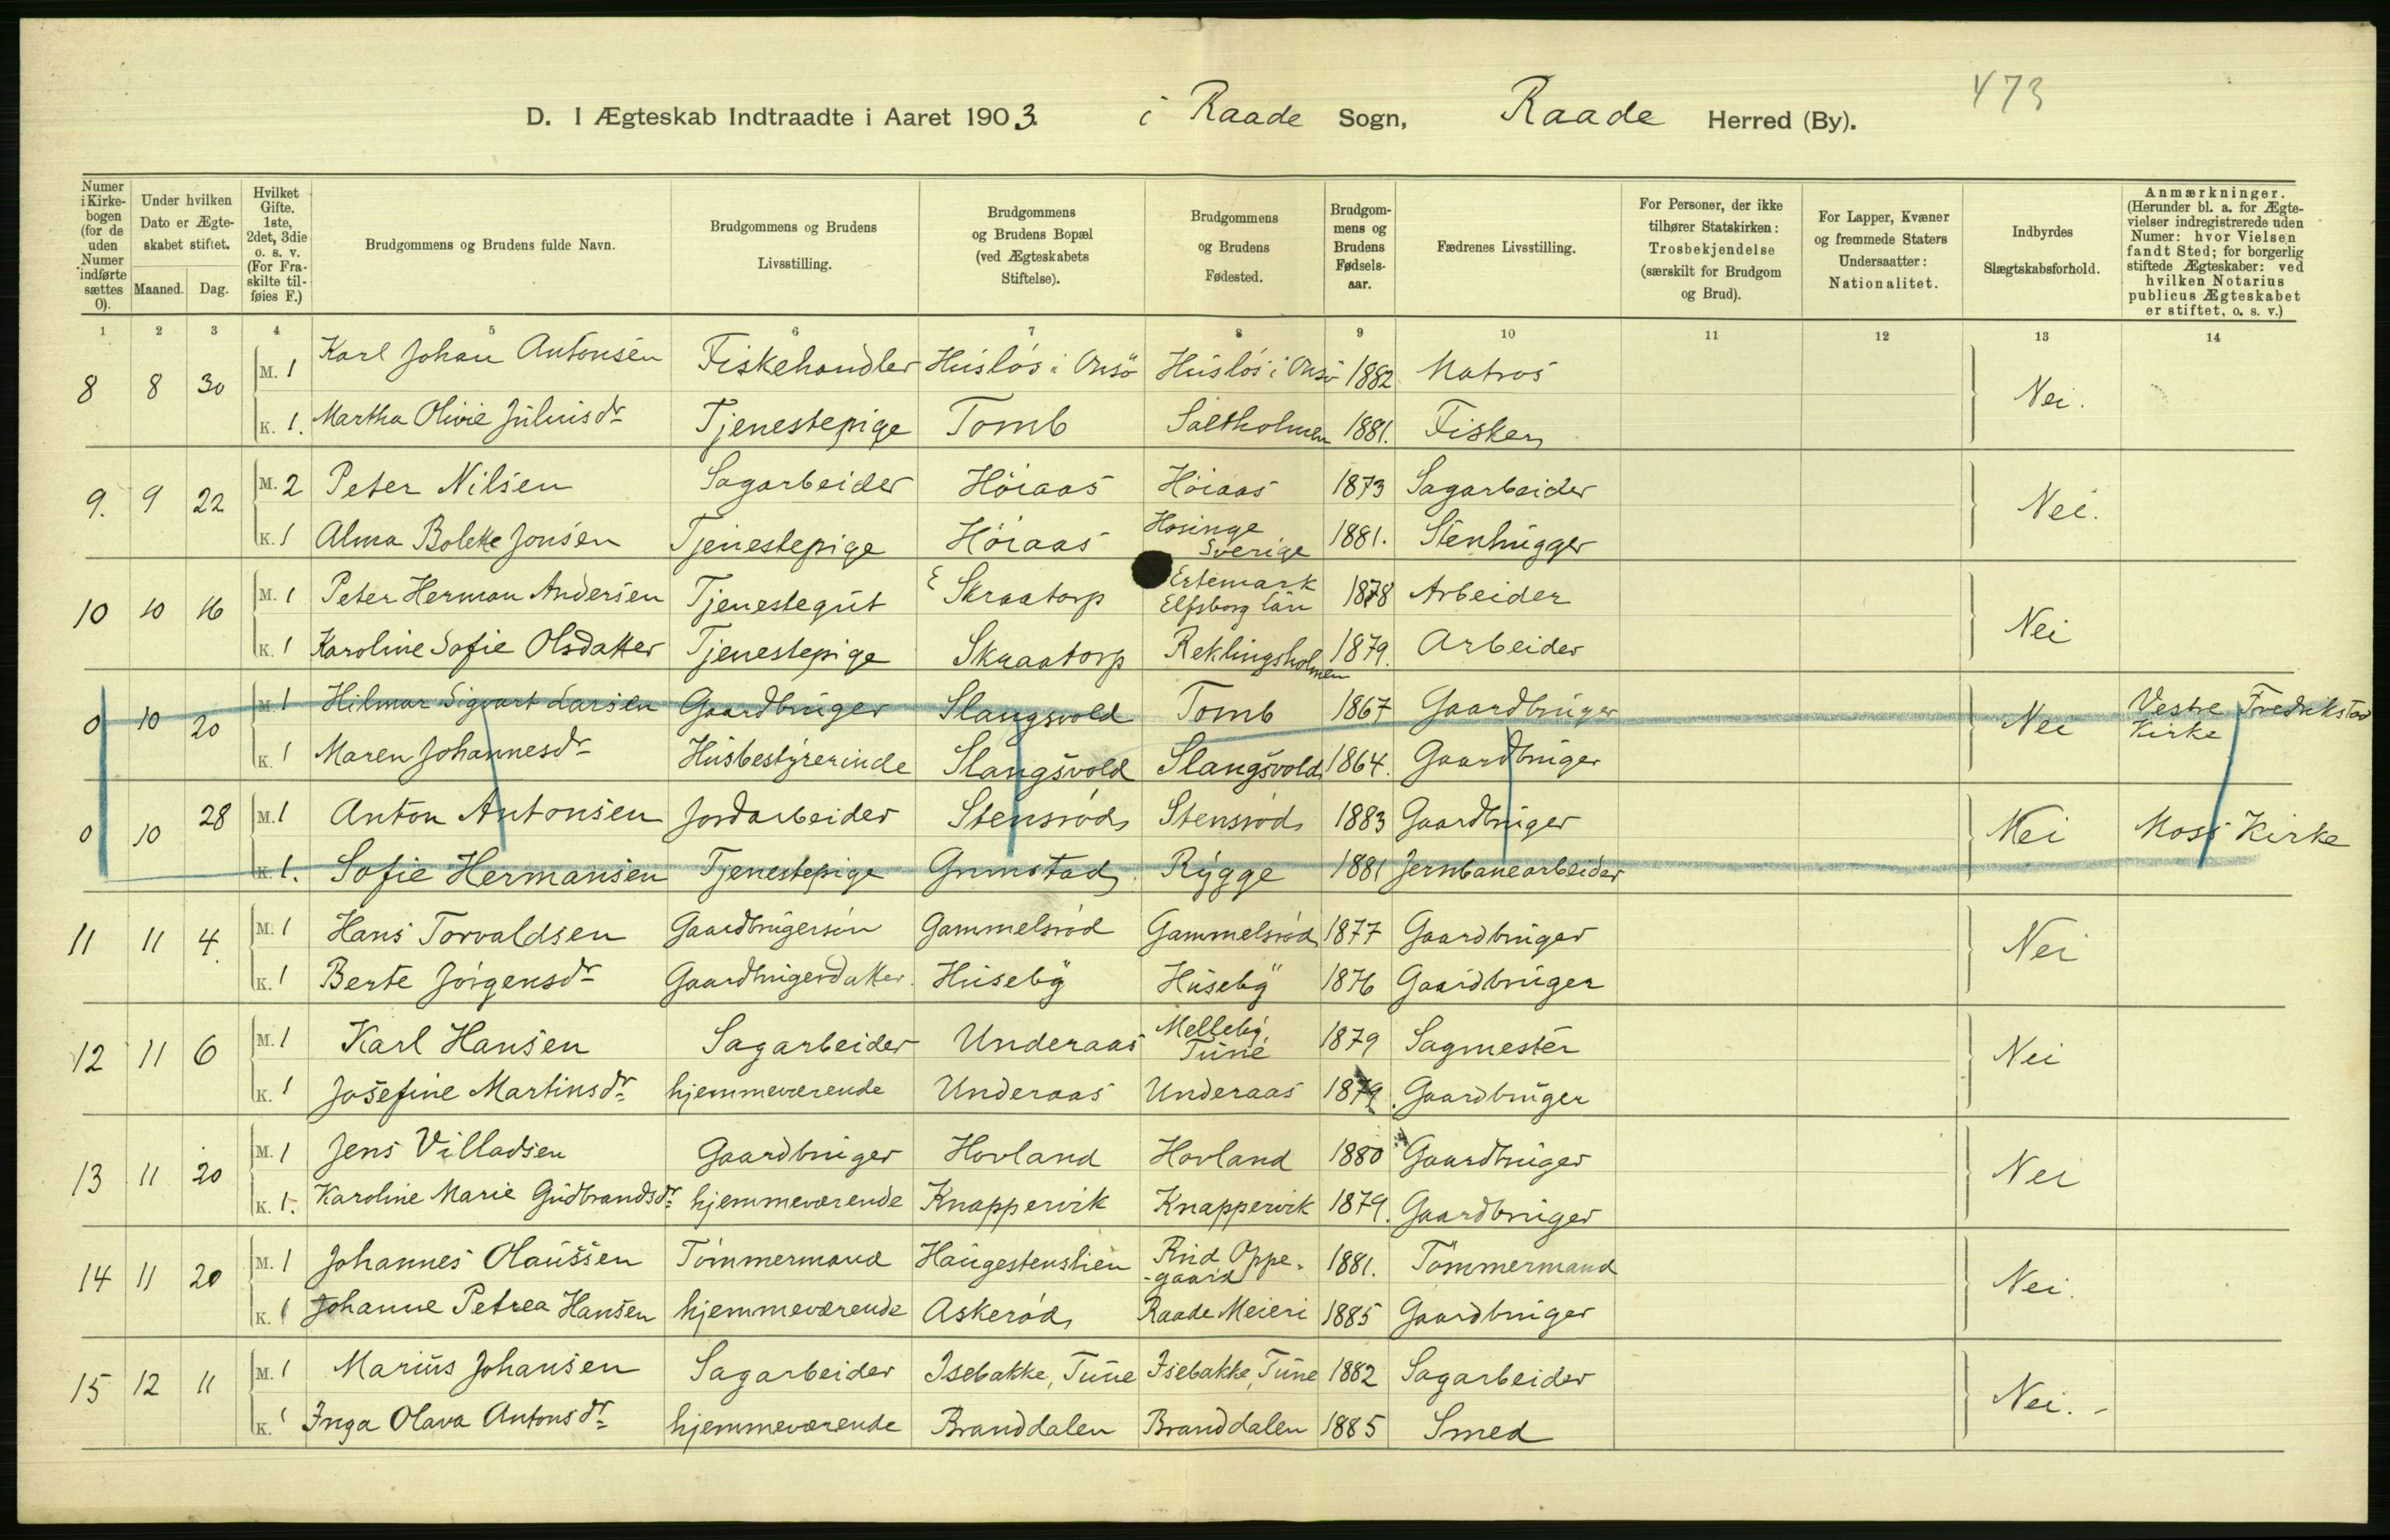 473
D. I Ægteskab Indtraadte i Aaret 1903. i Raade Sogn, Raade Herred (By).
Numer i Kirkebogen (for de uden Numer indførte sættes 0).
Under hvilken Dato er Ægteskabet stiftet.
Maaned. Dag.
Hvilket Gifte. 1ste, 2det, 3die o. s. v. (For Fraskilte tilføies F.)
Brudgommens og Brudens fulde Navn.
Brudgommens og Brudens Livsstilling.
Brudgommens og Brudens Bopæl (ved Ægteskabets Stiftelse).
Brudgommens og Brudens Fødested.
Brudgommens og Brudens Fødselsaar.
Fædrenes Livsstilling.
For Personer, der ikke tilhører Statskirken: Trosbekjendelse (særskilt for Brudgom og Brud).
For Lapper, Kvæner og fremmede Staters Undersaatter: Nationalitet.
Indbyrdes Slægtskabsforhold.
Anmærkninger. (Herunder bl. a. for Ægtevielser indregistrerede uden Numer: hvor Vielsen fandt Sted; for borgerlig stiftede Ægteskaber: ved hvilken Notarius publicus Ægteskabet er stiftet, o. s. v.)
1 2 3 4 5 6 7 8 9 10 11 12 13 14
8 8 30 M. 1 Karl Johan Antonsen Fiskehandler Husløs i Onsö Husløs i Onsö 1882 Matros Nei.
K. 1. Martha Olivie Juliusdr Tjenestepige Tomb Saltholmen 1881. Fisker
9. 9 22 M. 2 Peter Nilsen Sagarbeider Höiaas Höiaas 1873 Sagarbeider Nei.
K. 1 Alma Bolette Jonsen Tjenestepige Höiaas Hosinge Sverige 1881. Stenhugger
10 10 16 M. 1 Peter Herman Andersen Tjenestegut Skraatorp Ertemark Elfsborg län 1878 Arbeider Nei
K. 1 Karoline Sofie Olsdatter Tjenestepige Skraatorp Reklingsholmen 1879. Arbeider
0 10 20 M. 1 Hilmar Sigvart Larsen Gaardbruger Slangsvold Tomb 1867 Gaardbruger Nei Vestre Fredrikstad Kirke
K. 1 Maren Johannesdr Husbestyrerinde Slangsvold Slangsvold 1864. Gaardbruger
0 10 28 M. 1 Anton Antonsen Jordarbeider Stensrød Stensrød 1883 Gaardbruger Nei Moss Kirke
K. 1. Sofie Hermansen Tjenestepige Grimstad Rygge 1881 Jernbanearbeider
11 11 4. M. 1 Hans Torvaldsen Gaardbrugersøn Gammelsrød Gammelsrød 1877 Gaardbruger Nei
K. 1 Berte Jörgensdr Gaardbrugerdatter. Huseby Huseby 1876 Gaardbruger
12 11 6 M. 1 Karl Hansen Sagarbeider Underaas Melleby Tune 1879 Sagmester Nei
K. 1 Josefine Martinsdr hjemmeværende Underaas Underaas 1879. Gaardbruger
13 11 20 M. 1 Jens Villadsen Gaardbruger Hovland Hovland 1880 Gaardbruger Nei
K. 1. Karoline Marie Gudbrandsdr hjemmeværende Knappervik Knappervik 1879. Gaardbruger
14 11 20 M. 1 Johannes Olaussen Tömmermand Haugestenslien Rud Oppegaard 1881. Tömmermand Nei.
K. 1 Johanne Petrea Hansen hjemmeværende Askerød Raade Meieri 1885 Gaardbruger
15 12 11 M. 1 Marius Johansen Sagarbeider Isebakke, Tune Isebakke, Tune 1882 Sagarbeider Nei. -
K. 1 Inga Olava Antonsdr hjemmeværende Branddalen Branddalen 1885 Smed